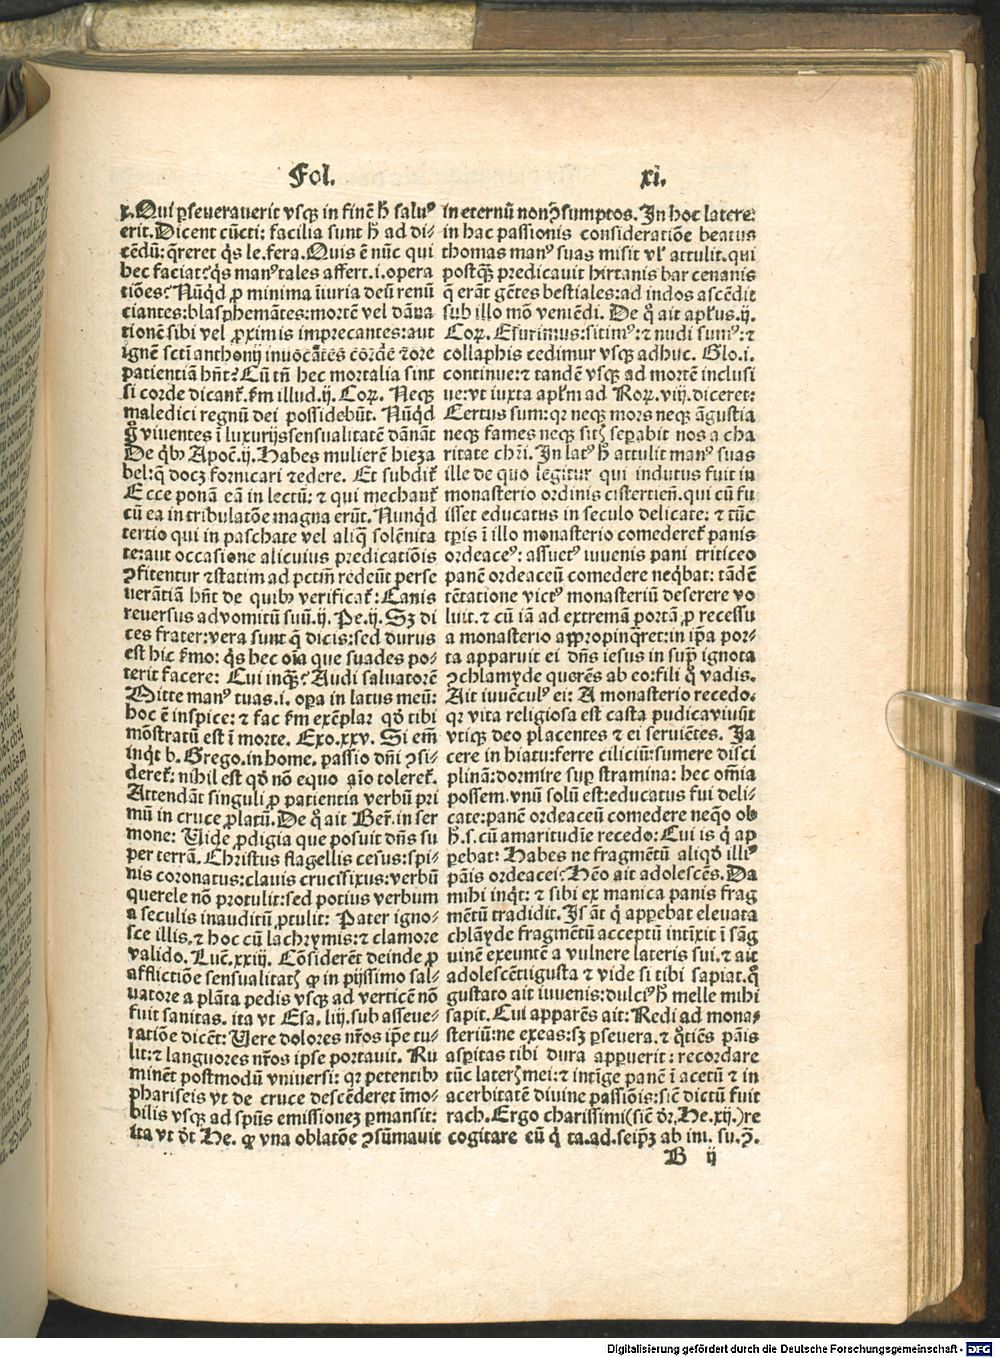 Fol. xi.
x. Qui ꝑseverauerit vsqꝫ in finē hˀ saluꝰ
erit. Dicent cūcti: facilia sunt hˀ ad di-
cēdū: q̄reret q̇s le. fera. Quis ē nūc qui
hec faciat? q̇s manꝰ tales affert .i. opera
tiōes? Nūq̇d ꝓ minima iiuria deū renū
ciantes: blasphemātes: mortē vel dāna
tionē sibi vel ꝓximis imprecantes: aut
ignē scti anthonij inuocātes corde ⁊ ore
patientiā hn̄t? Cū tn̄ hec mortalia sint
si corde dicant᷑. ẜm illud .ij. Coꝝ. Neqꝫ
maledici regnū dei possidebūt. Nūq̇d
viuentes ī luxurijs sensualitatē dānāt
De q̇bꝰ Apoč. ij. Habes mulierē hieza
bel: q̄ docꝫ fornicari ⁊ edere. Et subdit᷑
Ecce ponā eā in lectū: ⁊ qui mechant᷑
cū ea in tribulatōe magna erūt. Nunq̇d
tertio qui in paschate vel aliq̄ solēnita
te: aut occasione alicuius predicatiōis
ꝯfitentur ⁊ statim ad pctm̄ redeūt perse
uerātiā hn̄t de quibꝰ verificat᷑: Canis
reuersus ad vomitū suū. ij. Pe. ij. Sꝫ di
ces frater: vera sunt q̄ dicis: sed durus
est hic ẜmo: q̇s hec oīa que suades po-
terit facere: Cui inqꝫ? Audi saluatorē
Mitte manꝰ tuas .i. oꝑa in latus meū:
hoc ē inspice: ⁊ fac ẜm exēplar qd̄ tibi
mōstratū est ī morte. Exo. xxv. Si em̄
inq̇t b. Grego. in home. passio dn̄i ꝯsi-
deret᷑: nihil est qd̄ nō equo aīo toleret᷑.
Attendāt singuli ꝓ patientia verbū pri
mū in cruce ꝓlatū. De q̇ ait Ber̄. in ser
mone: Uide ꝓdigia que posuit dn̄s su
per terrā. Christus flagellis cesus: spi-
nis coronatus: clauis crucifixus: verbū
querele nō protulit: sed potius verbum
a seculis inauditū ꝓtulit: Pater igno-
sce illis, ⁊ hoc cū lachrymis: ⁊ clamore
valido. Luč. xxiij. Cōsiderēt deinde ꝓ
afflictiōe sensualitatꝭ ꝙ in pijssimo sal-
uatore a plāta pedis vsqꝫ ad verticē nō
fuit sanitas. ita vt Esa. liij. sub asseue-
ratiōe dicēt: Uere dolores nr̄os ip̄e tu-
lit: ⁊ languores nr̄os ipse portauit. Ru
minēt postmodū vniuersi: qꝛ petentibꝰ
phariseis vt de cruce descēderet īmo-
bilis vsqꝫ ad spūs emissionez ꝑmansit:
ita vt d̄t He. ꝙ vna oblatōe ꝯsūmauit
in eternū non ꝯsumptos. In hoc latere:
in hac passionis consideratiōe beatus
thomas manꝰ suas misit vl᷑ attulit. qui
postq̄ꝫ predicauit hirtanis bar cenanis
q̄ erāt gētes bestiales: ad indos ascēdit
sub illo mō veniēdi. De q̇ ait apl̄us. ij.
Coꝝ. Esurimus: sitimꝰ: ⁊ nudi sumꝰ: ⁊
collaphis cedimur vsqꝫ adhuc. Glo. i.
continue: ⁊ tandē vsqꝫ ad mortē inclusi
ue: vt iuxta apl̄m ad Roꝝ. viij. diceret:
Certus sum: qꝛ neqꝫ mors neqꝫ āgustia
neqꝫ fames neqꝫ sitꝭ seꝑabit nos a cha
ritate chr̄i. In latꝰ hˀ attulit manꝰ suas
ille de quo legitur qui indutus fuit in
monasterio ordinis cistertien̄. qui cū fu
isset educatus in seculo delicate: ⁊ tūc
tꝑis ī illo monasterio comederet᷑ panis
ordeaceꝰ: assuetꝰ iuuenis pani triticeo
panē ordeaceū comedere neq̇bat: tādē
tētatione victꝰ monasteriū deserere vo
luit. ⁊ cū iā ad extremā portā ꝓ recessu
a monasterio appropinq̄ret: in ip̄a por-
ta apparuit ei dn̄s iesus in suꝑ ignota
ꝯ chlamyde querēs ab eo: fili q̇ vadis.
Ait iuuēculꝰ ei: A monasterio recedo.
qꝛ vita religiosa est casta pudica viuūt
vtiqꝫ deo placentes ⁊ ei seruiētes. Ja
cere in hiatu: ferre ciliciū: sumere disci
plinā: dormire suꝑ stramina: hec om̄ia
possem. vnū solū est: educatus fui deli-
cate: panē ordeaceū comedere neq̇o ob
hˀ .s. cū amaritudīe recedo: Cui is q̇ ap
ꝑebat: Habes ne fragmētū aliqd̄ illiꝰ
pāis ordeacei: Hēo ait adolescēs. Da
mihi inq̇t: ⁊ sibi ex manica panis frag
mētū tradidit. Is āt q̇ apꝑebat eleuata
chlāyde fragmētū acceptū intīxit ī sāg
uinē exeuntē a vulnere lateris sui. ⁊ ait
adolescēti gusta ⁊ vide si tibi sapiat. q̇
gustato ait iuuenis: dulciꝰ hˀ melle mihi
sapit. Cui apparēs ait: Redi ad mona-
steriū: ne exeas: sꝫ ꝑseuera. ⁊ q̇tiēs pāis
asꝑitas tibi dura apꝑuerit: recordare
tūc laterꝭ mei: ⁊ intīge panē ī acetū ⁊ in
acerbitatē diuine passiōis: sic̄ dictū fuit
rach. Ergo charissimi (sic̄ dr̄. He. xij.) re
cogitare eū q̇ ta. ad. seip̄ꝫ ab im. su. ꝯ.
B ij
Digitalisierung gefördert durch die Deutsche Forschungsgemeinschaft - DFG